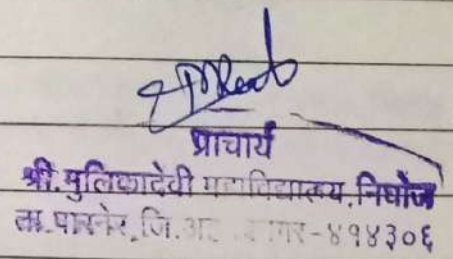 प्राचार्य
श्री. मुलिकादेवी महाविद्यालय, निघोज
ता. पारनेर, जि. अहमदनगर-४१४३०६